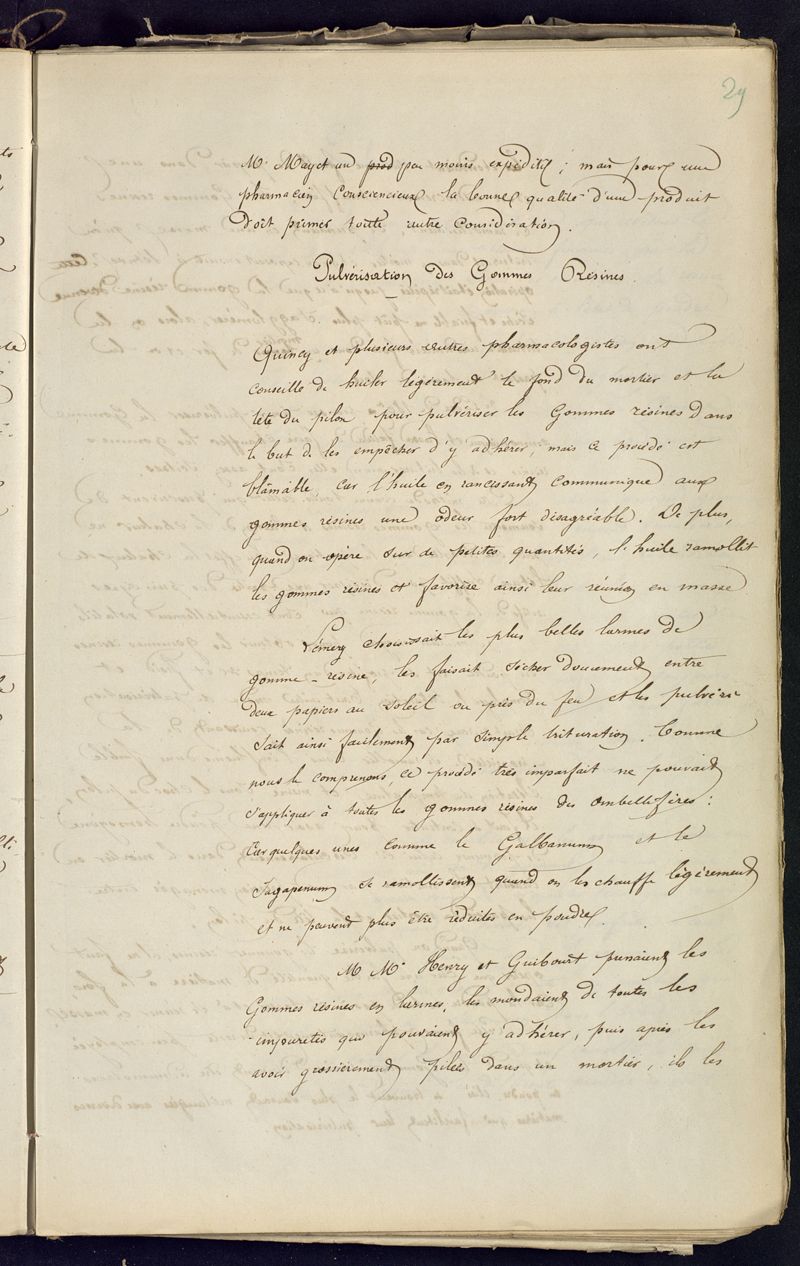 29
Mr Mayet un prod peu moins expéditif ; mais pour une
pharmacien Consciencieux la bonne qualité d'une produit
doit primer toute autre Considération.
Pulvérisation des Gommes Résines.
Quincy et plusieurs autres pharmacologistes ont
Conseillé de huiler légèrement le fond du mortier et la
tête du pilon pour pulvériser les Gommes résines dans
le but de les empêcher d'y adhérer ; mais ce procédé est
blâmable, car l'huile en rancissant Communique aux
gommes résines une odeur fort désagréable. De plus,
quand on opère sur de petites quantités, l'huile ramollit
les gommes résines et favorise ainsi leur réunion en masse
Lémery choisissait les plus belles larmes de
gomme-résine, les faisait sécher doucement entre
deux papiers au soleil ou près du feu et les pulvéri-
sait ainsi facilement par simple trituration. Comme
nous le comprenons, ce procédé très imparfait ne pouvait
s'appliquer à toutes les gommes résines des ombellifères :
Car quelques unes comme le Galbanum et le
Sagapenum se ramollissent quand on les chauffe légèrement
et ne peuvent plus être réduites en poudre.
M Mrs Henry et Guibourt prenaient les
Gommes résines en larmes, les mondaient de toutes les
impuretés que pouvaient y adhérer, puis après les
avoir grossièrement pilées dans un mortier, ils les